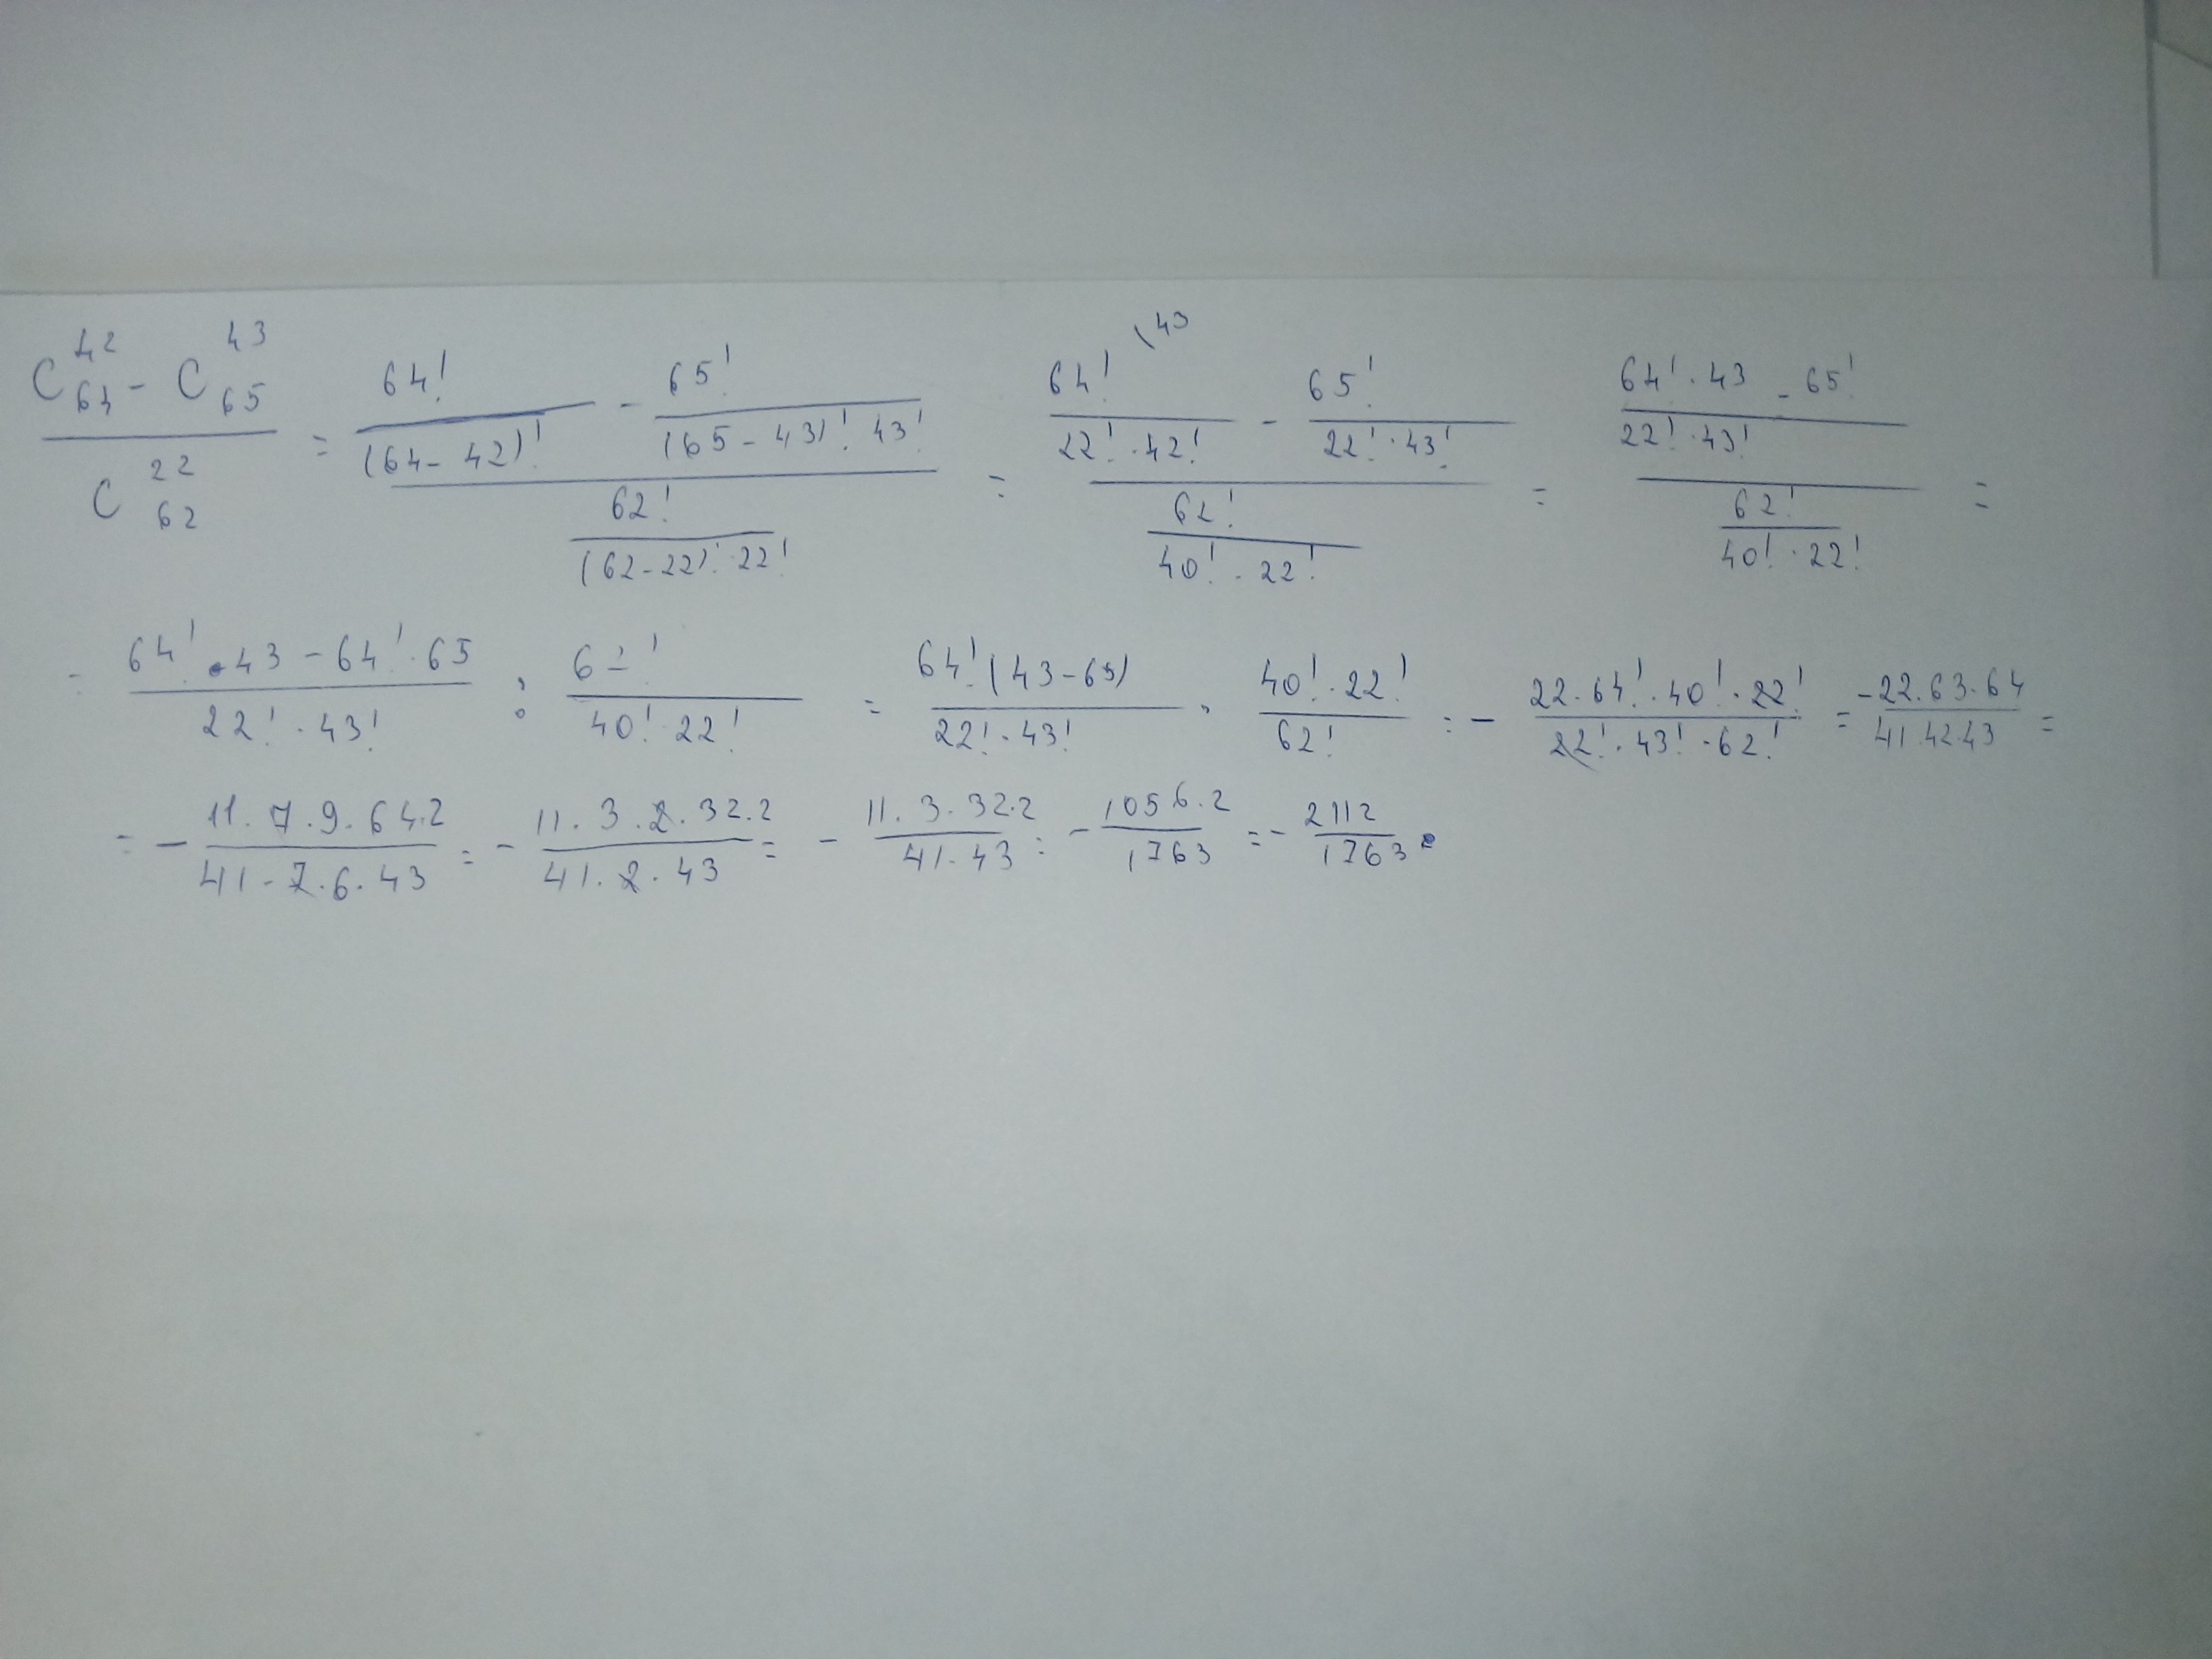 (C_64^42 - C_65^43) / C_62^22 = (64! / (64 - 42)! - 65! / ((65 - 43)! 43!)) / (62! / ((62 - 22)! · 22!)) = (64! \43 / (22! · 42!) - 65! / (22! · 43!)) / (62! / (40! · 22!)) = ((64! · 43 - 65!) / (22! · 43!)) / (62! / (40! · 22!)) =
= (64! · 43 - 64! · 65) / (22! · 43!) : 62! / (40! · 22!) = 64! (43 - 65) / (22! · 43!) · (40! · 22!) / 62! = - (22 · 64! · 40! · 22!) / (22! · 43! · 62!) = (-22 · 63 · 64) / (41 · 42 · 43) =
= - (11 · 7 · 9 · 64 · 2) / (41 · 7 · 6 · 43) = - (11 · 3 · 2 · 32 · 2) / (41 · 2 · 43) = - (11 · 3 · 32 · 2) / (41 · 43) = - (1056 · 2) / 1763 = - 2112 / 1763 .